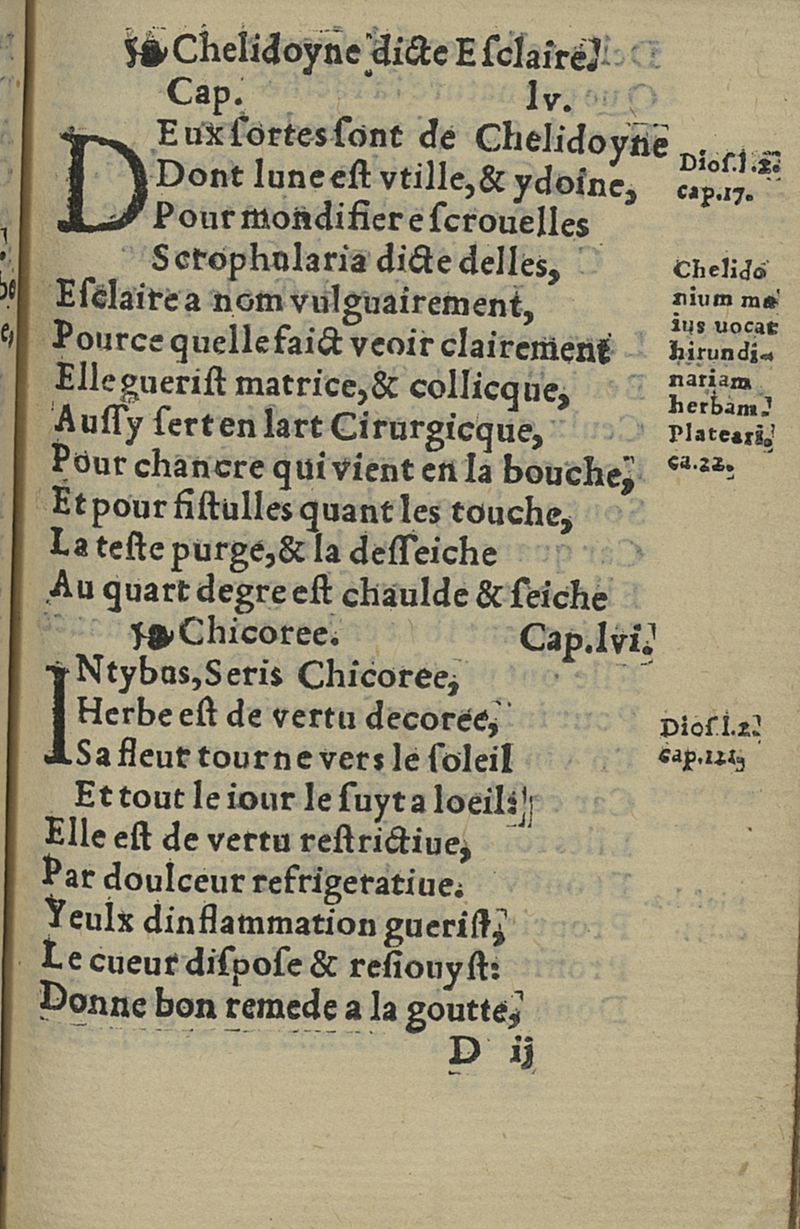 ❧Chelidoyne dicte Eſclaire.
Cap. lv.
DEux ſortes ſont de Chelidoyne
Dont lune eſt vtille, & ydoine,
Pour mondifier eſcrouelles
Scrophularia dicte delles,
Eſclaire a nom vulguairement,
Pource quelle faict veoir clairement
Elle gueriſt matrice, & collicque,
Auſſy ſert en lart Cirurgicque,
Pour chancre qui vient en la bouche,
Et pour fiſtulles quant les touche,
La teſte purge, & la deſſeiche
Au quart degre eſt chaulde & ſeiche
Dioſ.l.2.
cap.17.
Chelido
nium ma
ius uocat
hirundi-
nariam
herbam.
Plateari.
ca.22.
❧Chicoree. Cap.lvi.
INtybus, Seris Chicoree,
Herbe eſt de vertu decoree,
Sa fleur tourne vers le ſoleil
Et tout le iour le ſuyt a loeil:
Elle eſt de vertu reſtrictiue,
Par doulceur refrigeratiue.
Yeulx dinflammation gueriſt,
Le cueur diſpoſe & reſiouyſt:
Donne bon remede a la goutte,
Dioſ.l.2.
cap.121,
D ij